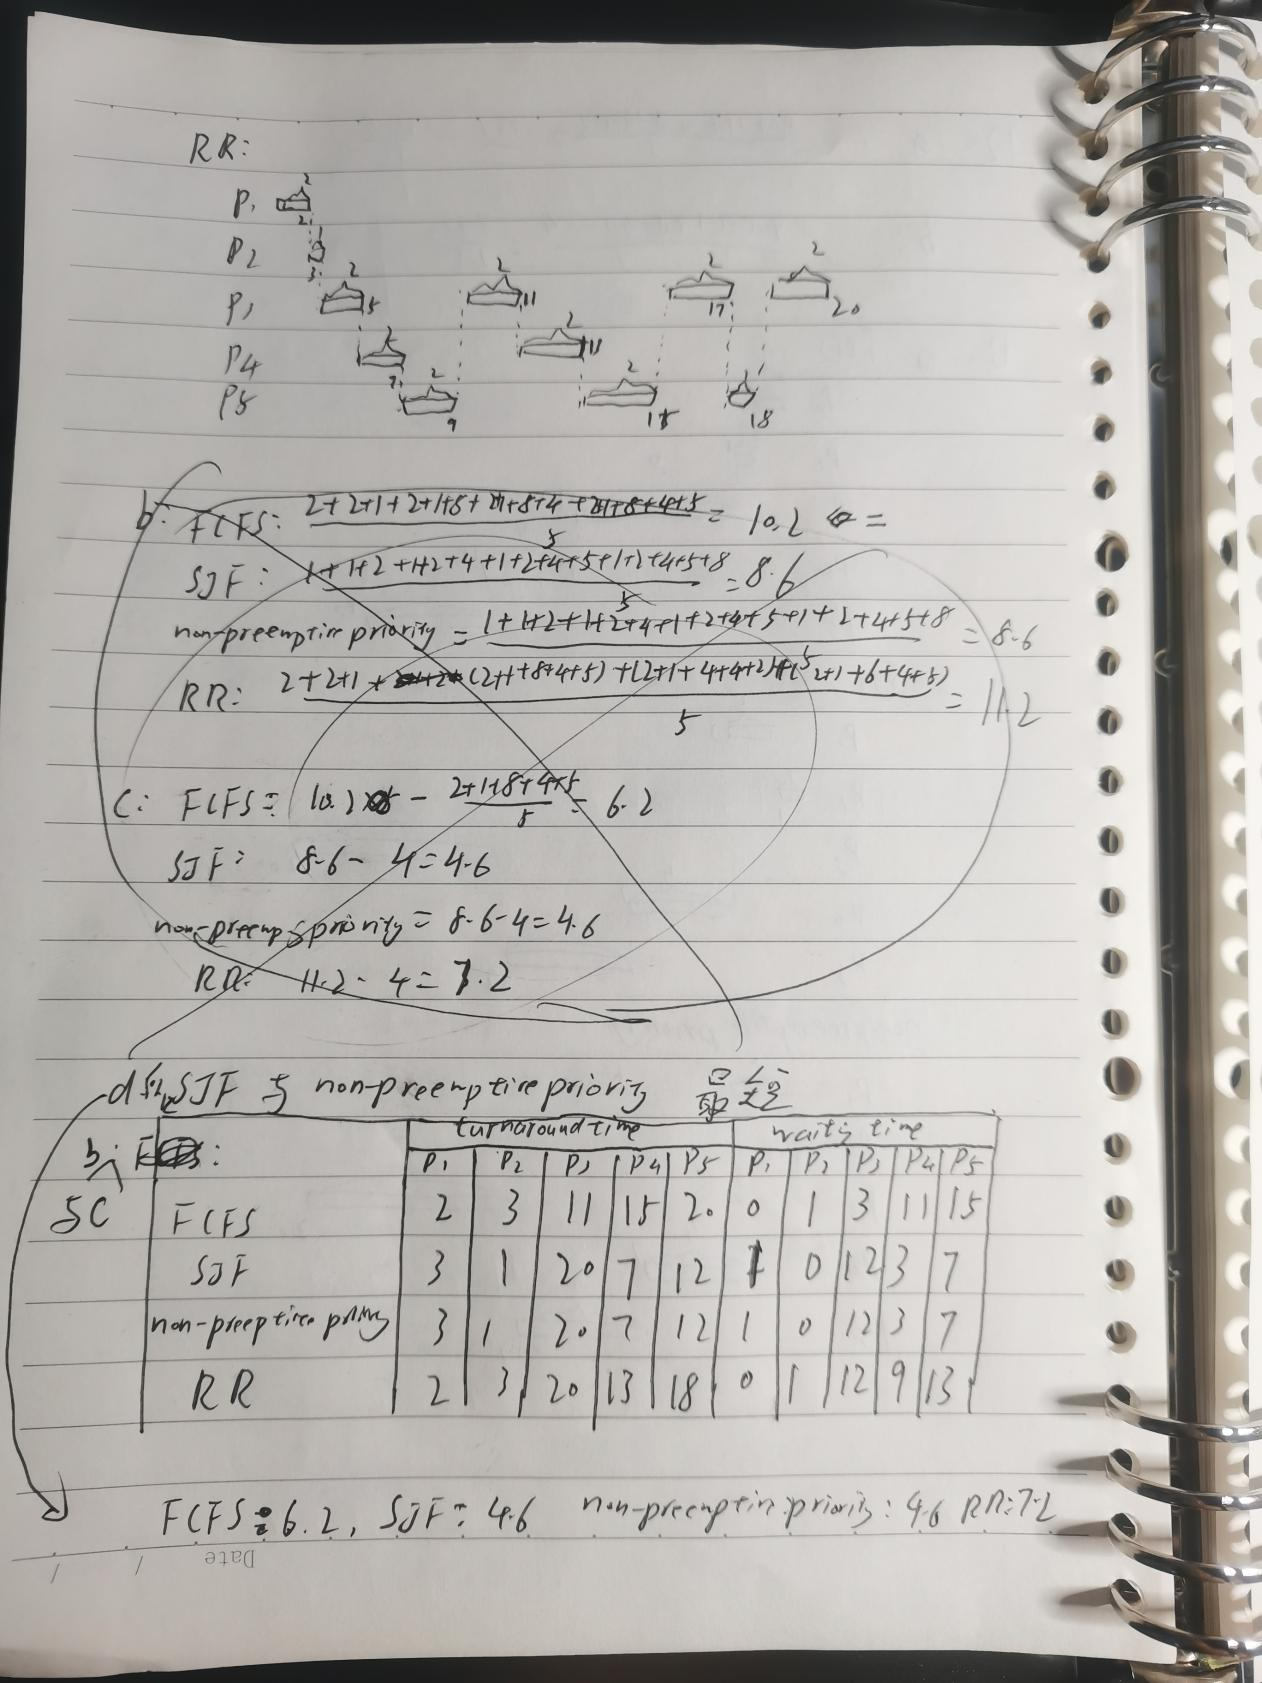 RR:
2
P1
2
1
P2
3
2 2 2 2
P3 5 11 17 20
2 2
P4 7 13
2 2
P5 9 15 18
b: FCFS: 2+2+1+2+1+8+2+1+8+4+2+1+8+4+5 / 5 = 10.2 =
SJF: 1+1+2+1+2+4+1+2+4+5+1+2+4+5+8 / 5 = 8.6
non-preemptive priority = 1+1+2+1+2+4+1+2+4+5+1+2+4+5+8 / 5 = 8.6
RR: 2+2+1+ (2+1+8+4+5)+(2+1+4+4+2)+(2+1+6+4+5) / 5 = 11.2
C: FCFS = 10.2 - 2+1+8+4+5 / 5 = 6.2
SJF: 8.6 - 4 = 4.6
non-preemp priority = 8.6-4=4.6
RR: 11.2 - 4 = 7.2
d SJF 与 non-preemptive priority 最短
turnaround time waitig time
b:
P1 P2 P3 P4 P5 P1 P2 P3 P4 P5
与C FCFS 2 3 11 15 20 0 1 3 11 15
SJF 3 1 20 7 12 1 0 12 3 7
non-preeptive 3 1 20 7 12 1 0 12 3 7
RR 2 3 20 13 18 0 1 12 9 13
FCFS: 6.2, SJF: 4.6 non-preemptive priority: 4.6 RR: 7.2
Date / /